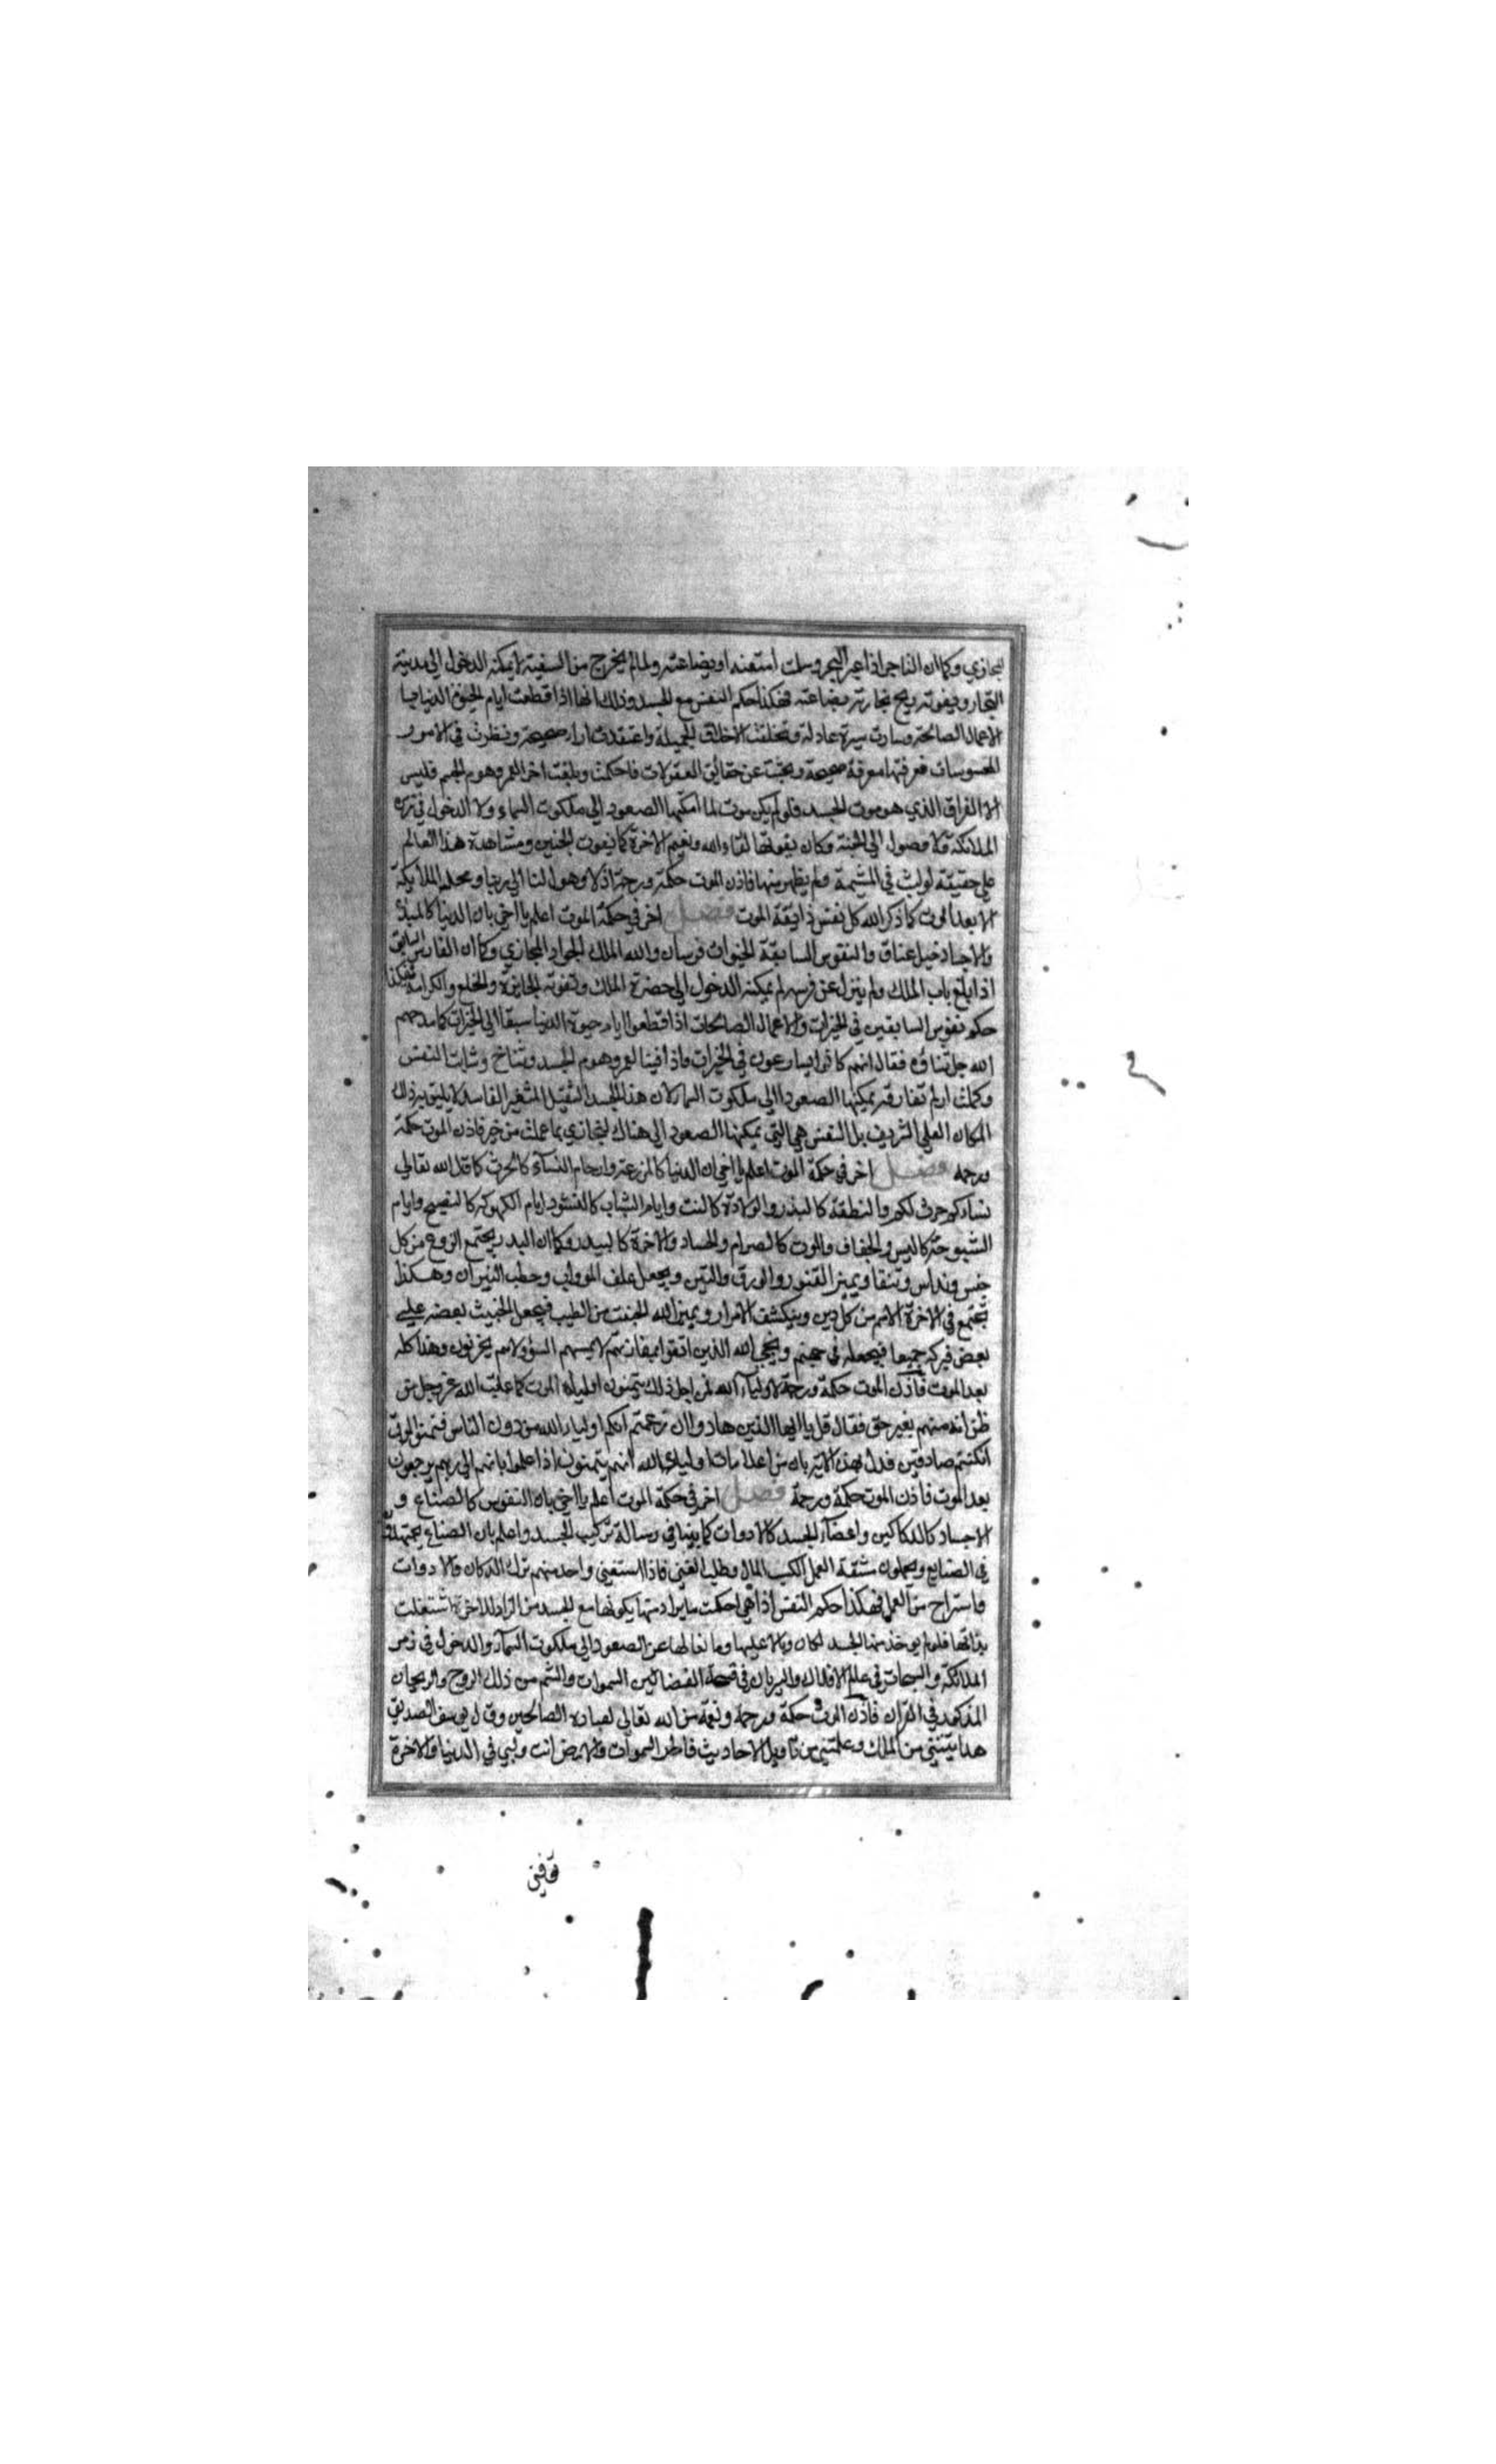 لتجازي وكما ان التاجر اذا عبر البحر وسلمت امتعته او بضاعته ولما لم يخرج من السفينة لا يمكنه الدخول الى مدينة
التجار ويفوته ربح تجارته بضاعته فهكذا حكم النفس مع الجسد وذلك انها اذا قطعت ايام الحيوة الدنيا
الاعمال الصالحة وسارت سيرة عادلة وتخلقت الاخلاق الجميلة واعتقدت اراء صحيحة ونظرت في الامور
المحسوسات فعرفتها معرفة صحيحة وبحثت عن حقائق المعقولات فاحكمت وبلغت اخر العمر وهوم الجسم فليس
الا الفراق الذي هو موت الجسد فلو لم يكن موت لما امكنها الصعود الى ملكوت السماء ولا الدخول في زمرة
الملائكة ولا وصول الى الجنة وكان يفوتها لقاء الله ونعيم الاخرة كما يفوت الجنين ومشاهدة هذا العالم
على حقيقته لو لبث في المشيمة ولم يظهر منها فاذن الموت حكمة ورحمة اذ لا وصول لنا الى ربنا ومحله الملايكة
الا بعد الموت كما ذكر الله كل نفس ذايقة الموت فصل اخر في حكمة الموت اعلم يا اخي بان الدنيا كالميدان
والاجساد خيل عناق والنفوس السابقة الخيرات فرسان والله الملك الجواد المجازي وكما ان الفارس السابق
اذا بلغ باب الملك ولم ينزل عن فرسه لم يمكنه الدخول الى حضرة الملك وتفوته الجايزة والخلع والكرامة فهكذا
حكم نفوس السابقين في الخيرات والاعمال الصالحات اذا قطعوا ايام حيوة الدنيا سبقا الى الخيرات كما مدحهم
الله جل ثناؤه فقال انهم كانوا يسارعون في الخيرات فاذا فنيا العمر وهوم الجسد وشاخ وشابت النفس
وكملت ان لم تفارقه يمكنها الصعود الى ملكوت السما لان هذا الجسد الثقيل المتغير الفاسد لا يليق به ذلك
المكان العلي الشريف بل النفس هي التي يمكنها الصعود الى هناك لتجازي بما عملت من خير فاذن الموت حكمة
ورحمة فصل اخر في حكمة الموت اعلم يا اخي ان الدنيا كالمزرعة وارحام النسآء كالحرث كما قال الله تعالى
نساؤكم حرث لكم والنطفة كالبذر والولادة كالنبت وايام الشباب كالنشو وايام الكهولة كالنضج وايام
الشيوخة كاليبس والجفاف والموت كالصرام والحصاد والاخرة كالبيدر وكما ان البيدر يجتمع الزرع من كل
جنس ويداس وينقا ويميز القشور والورق والتبن ويجعل علف الدواب وحطب النيران وهكذا
تجتمع في الاخرة الامم من كل دين وينكشف الاسرار ويميز الله الخبيث من الطيب فيجعل الخبيث بعضه على
بعض فيركمه جميعا فيجعله في جهنم وينجي الله الذين اتقوا بمفازتهم لا يمسهم السوؤ ولا هم يحزنون وهذا كله
بعد الموت فاذن الموت حكمة ورحمة لاوليآء الله لمن اجل ذلك يتمنون اولياؤه الموت كما عاتب الله عز وجل من
ظن انه منهم بغير حق فقال قل يا ايها الذين هادوا ان زعمتم انكم اولياء لله من دون الناس فتمنوا الموت
ان كنتم صادقين فدل بهذه الاية بان من علامات اولياء الله انهم يتمنون اذا علموا بانهم الى ربهم يرجعون
بعد الموت فاذن الموت حكمة ورحمة فصل اخر في حكمة الموت اعلم يا اخي بان النفوس كالصناع و
الاجساد كالدكاكين واعضآء الجسد كالادوات كما بينا في رسالة تركيب الجسد واعلم بان الصناع يجتهدون
في الصنايع ويحملون مشقة العمل لكسب المال وطلب الغنى فاذا استغنى واحد منهم ترك الدكان والادوات
واستراح من العمل فهكذا حكم النفس اذا هي احكمت ما يراد منها بكونها مع الجسد من الزاد للاخرة اشتغلت
بذاتها فلو لم يوخذ منها الجسد لكان وبالا عليها ومانعا لها عن الصعود الى ملكوت السمآء والدخول في زمر
الملائكة والسبحات في عالم الافلاك والسريان في فسحة الفضا بين السموات والشم من ذلك الروح والريحان
المذكور في القران فاذن الموت حكمة ورحمة ونعمة من الله تعالى لعباده الصالحين وقال يوسف الصديق
من الملك وعلمتني من تاويل الاحاديث فاطر السموات والارض انت وليي في الدنيا والاخرة
توفني